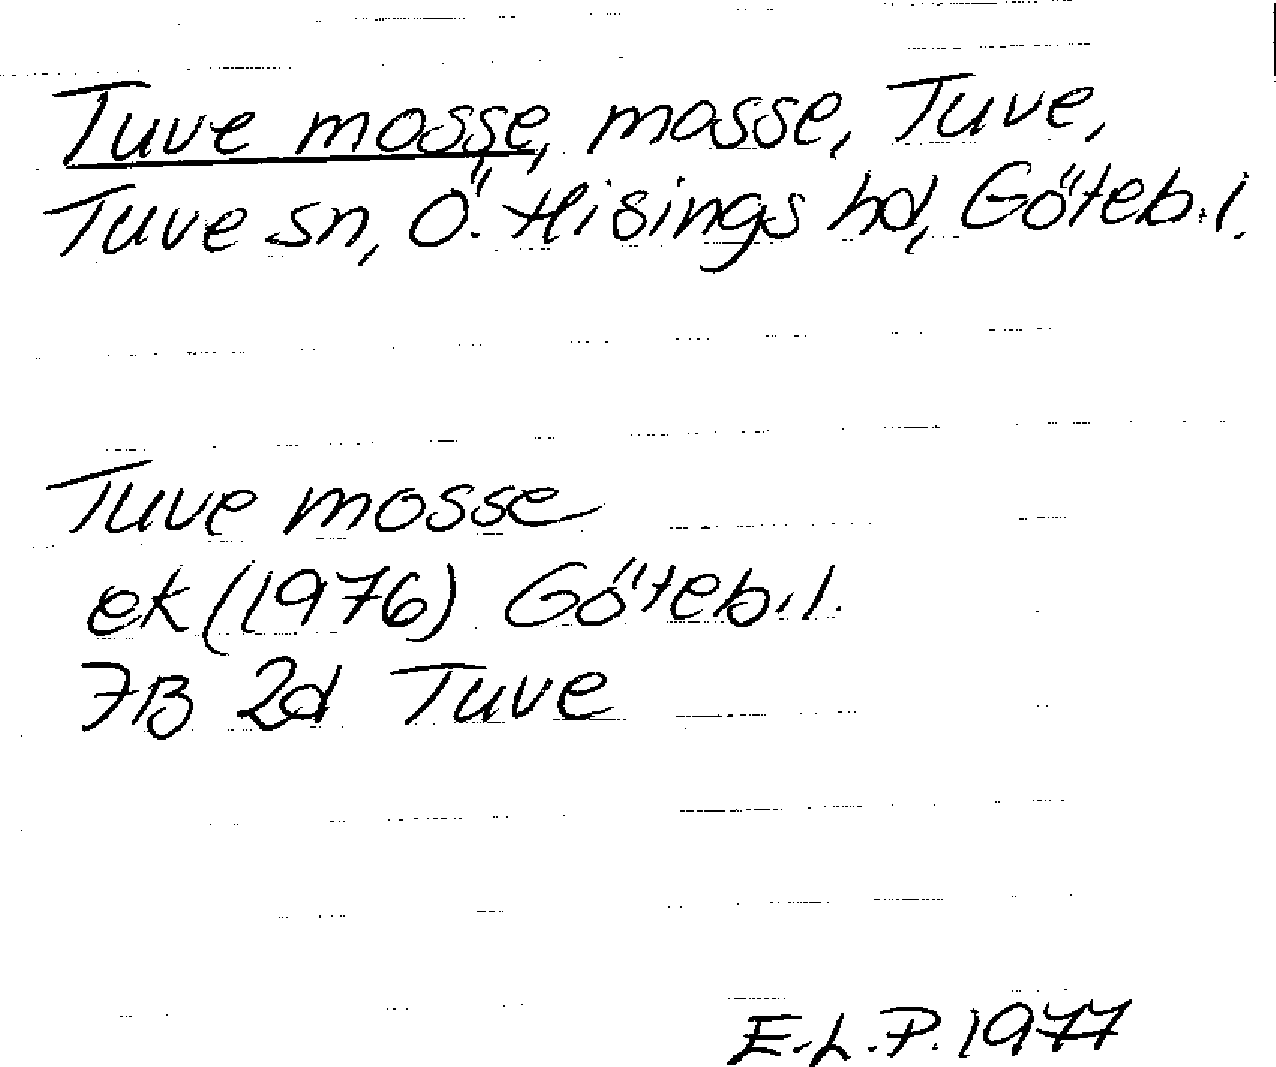 Tuve mosse, mosse, Tuve,
Tuve sn, Ö. Hisings hd, Göteb. l.
Tuve mosse
ek (1976) Göteb. l.
7B 2d Tuve
E.L.P. 1977